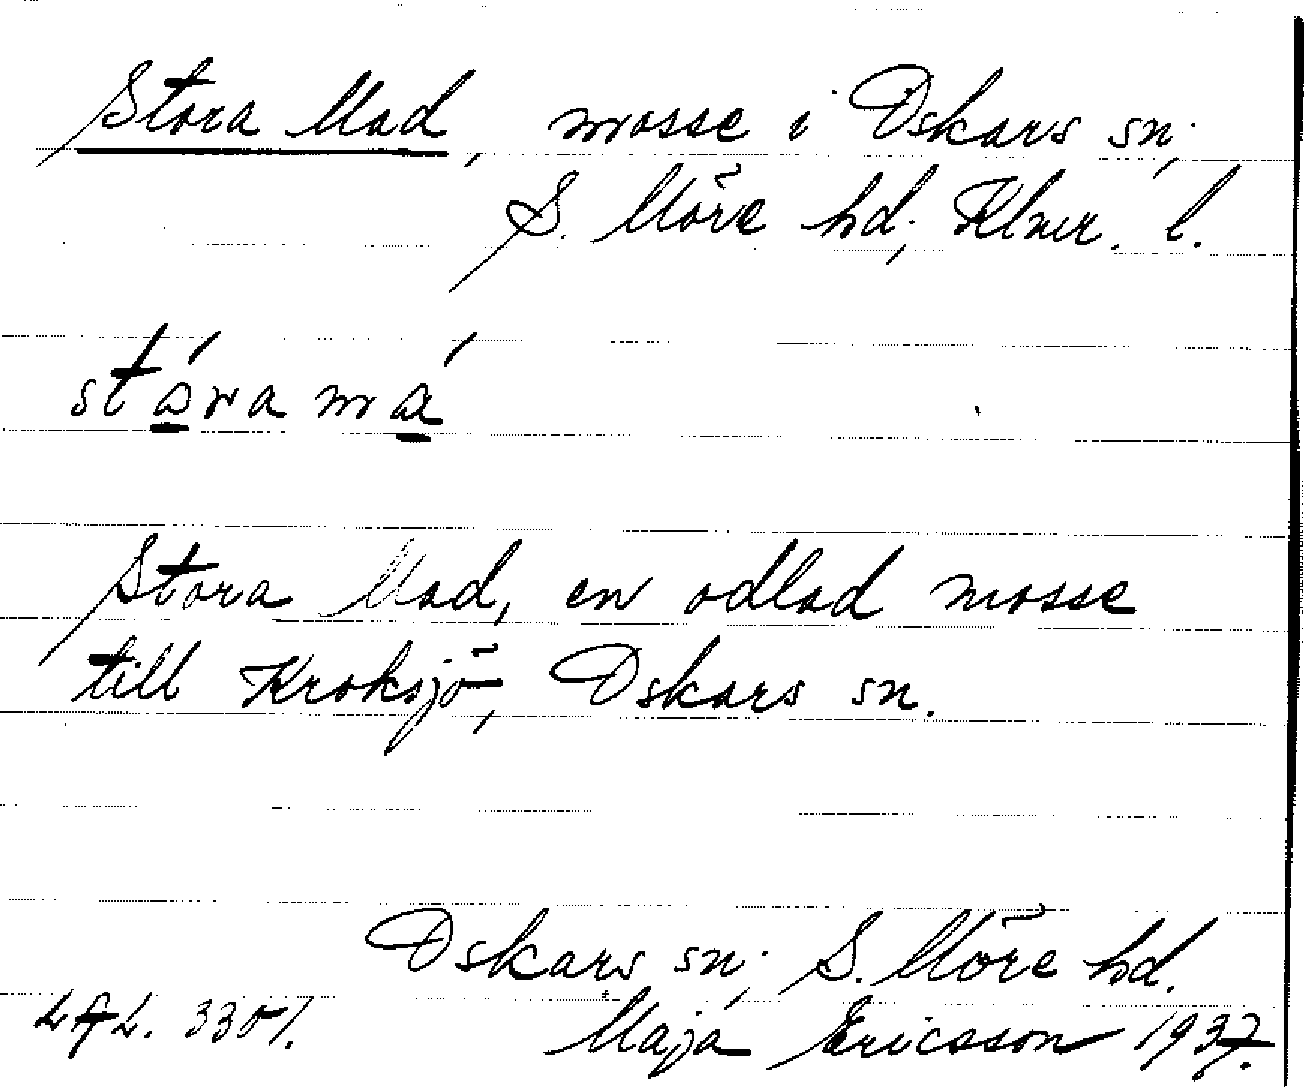 Stora Mad, mosse i Oskars sn,
S. Möre hd, Klmr. l.
stóra má
Stora Mad, en odlad mosse
till Kroksjö, Oskars sn.
Oskars sn, S. Möre hd.
LAL. 3301. Maja Ericsson 1937.